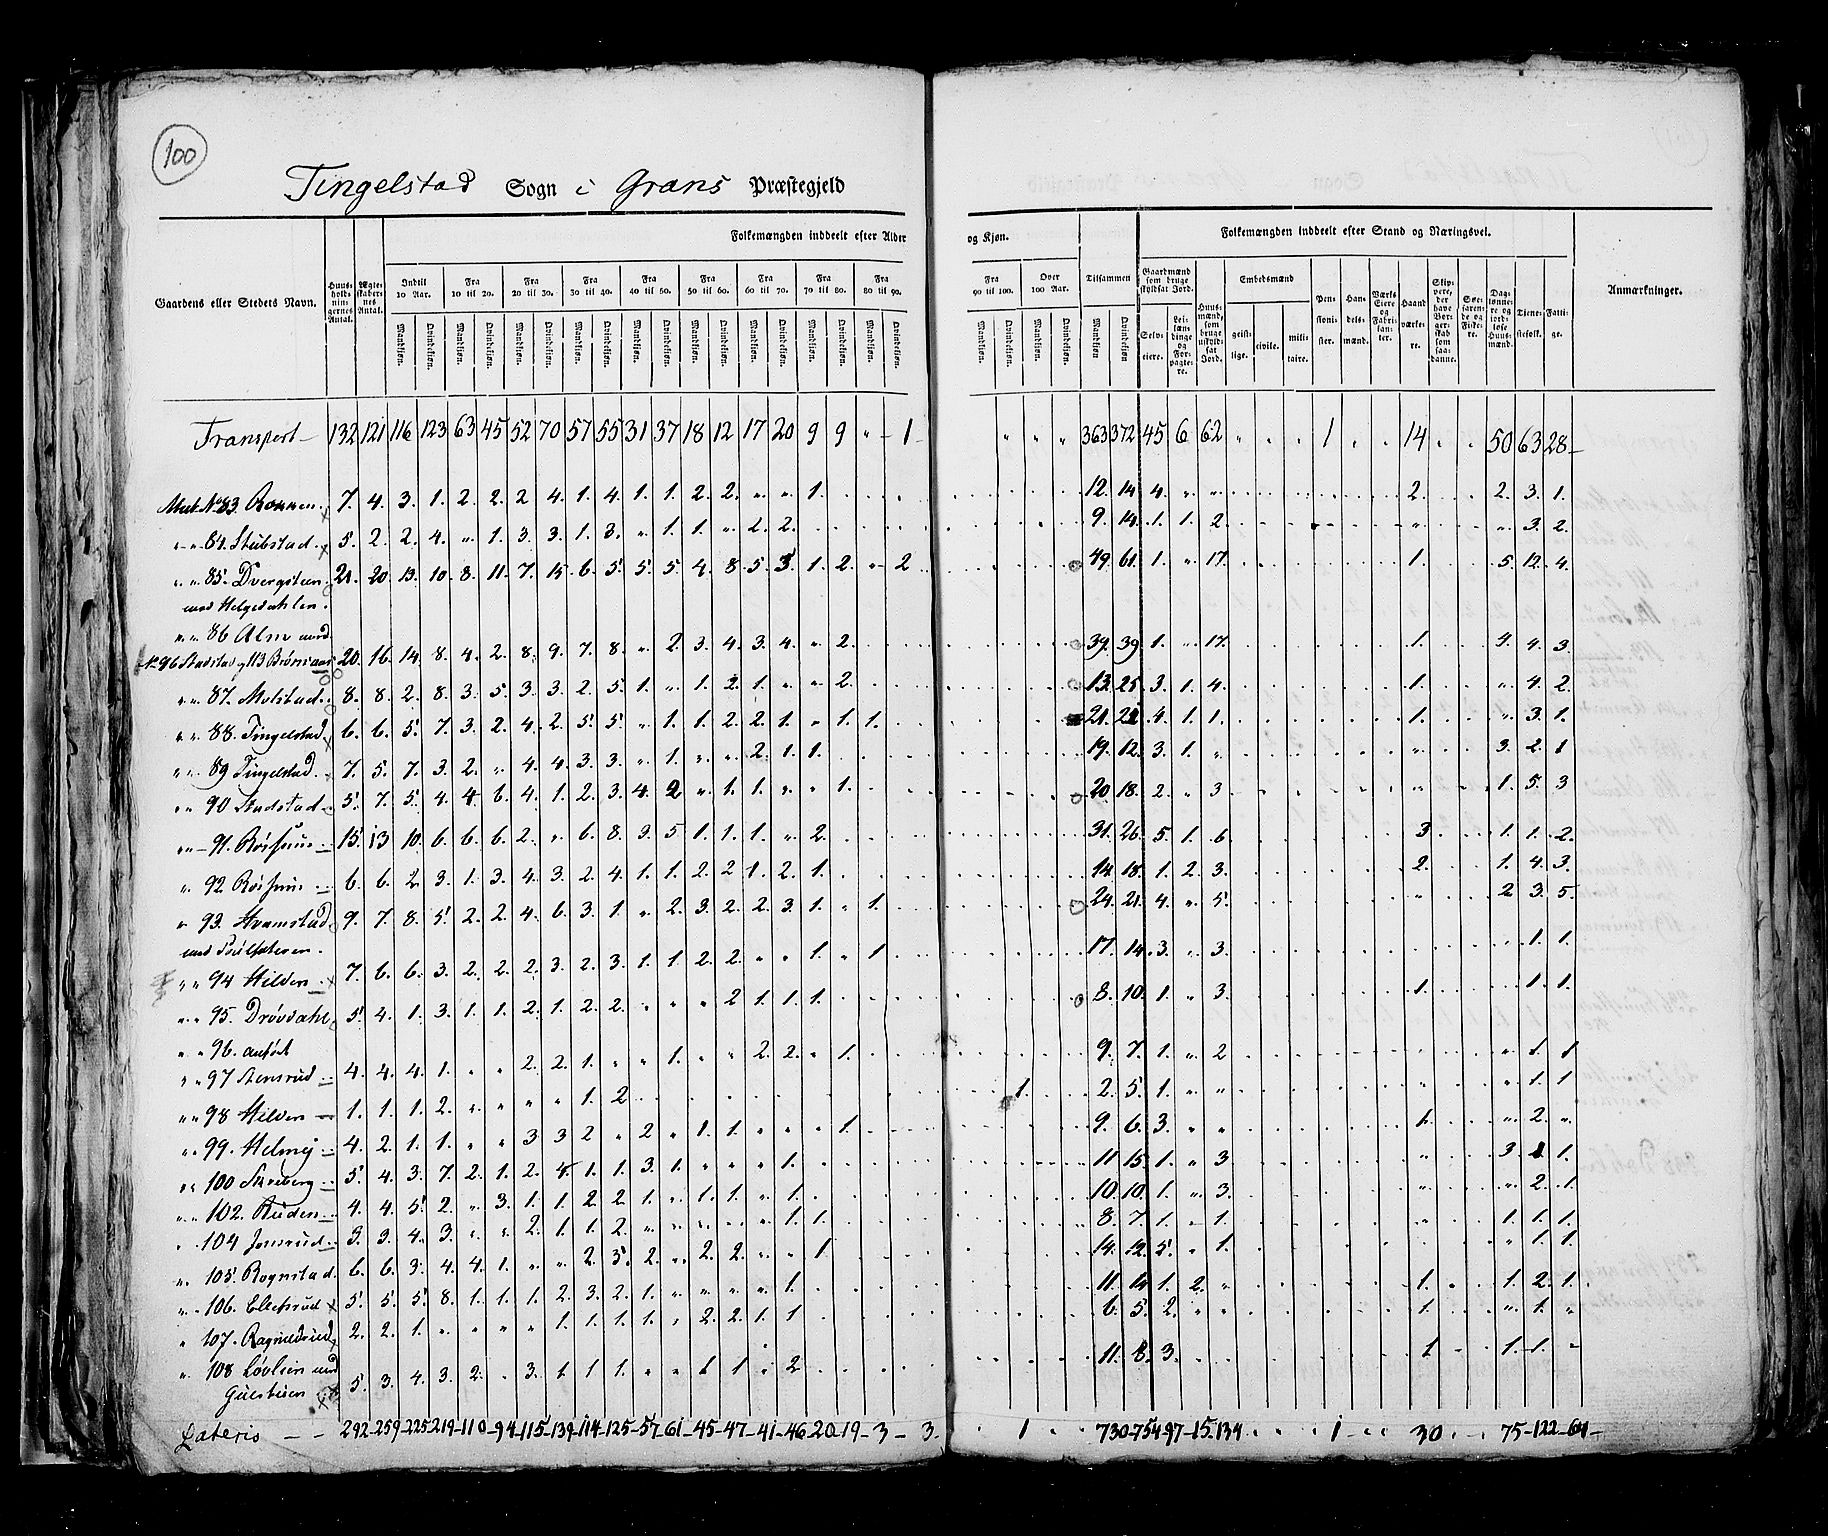 100
Tingelstad Sogn i Grans Præstegjeld
Gaardens eller Stedets Navn. Huusholdningernes Antal. Ægteskabernes Antal. Folkemængden inddeelt efter Alder og Kjøn. Tilsammen Folkemængden inddeelt efter Stand og Næringsvei. Anmærkninger.
Indtil 10 Aar. Fra 10 til 20. Fra 20 til 30. Fra 30 til 40. Fra 40 til 50. Fra 50 til 60. Fra 60 til 70. Fra 70 til 80. Fra 80 til 90. Fra 90 til 100. Over 100 Aar.
Gaardmænd som bruge skyldsat Jord. Huusmænd, som bruge uskyldsat Jord. Embedsmænd Pensionister. Handelsmænd. Værks Eiere og Fabrikanter. Haandværkere. Skippere, der have Borgerskab som saadanne. Søefarende og Fiskere. Daglønnere og jordløse Huusmænd. Tjenestefolk. Fattige.
Mandkjøn. Qvindekjøn. Selveiere. Leilændinge og Forpagtere. geistlige. civile. militaire.
Transport 132 121 116 123 63 45 52 70 57 55 31 37 18 12 17 20 9 9 " 1 " " " 363 372 45 6 62 " 1 14 50 63 28
7. 4. 3. 1. 2. 2. 2 4. 1. 4. 1. 1. 2. 2. " " 1. 12. 14 4. " " 2. 2. 3. 1.
" " 84. Stubstad 5. 2. 2. 4. " 1. 3. 3. 1. 3. " 1. 1. " 2. 2. 9. 14. 1. 1. 2 " " 3. 2.
" " 85. Dvergsteen 21. 20 13. 10 8. 11. 7. 15 6. 5. 5. 5. 4. 8. 5. 3. 1. 2. " 2 49 61. 1. " 17. 1. 5. 12. 4.
med Helgedahlen.
" " 86 Alm med
20. 16. 14 8. 4. 2. 8. 9. 7. 8. " 2 3. 4. 3. 4. " 2. 39. 39. 1. " 17. 1. 4. 3.
" " 87. Molstad 8. 8. 2. 8. 3. 5. 3. 3. 2. 5. 1. " 1. 2. 1. " " 2. 13. 25. 3. 1. 4. 1. " 4. 2
" " 88. Tingelstad 6. 6. 5. 7. 3. 2. 4. 2. 5. 5. " 1. 1. 2. 2. 1. " 1. 1. 21. 4. 1. 1. 1. " 3. 1.
" " 89 Tingelstad 7. 5. 7. 3. 2. " 4. 4. 3. 3. " 1. " " 2. 1. 1. 19. 12. 3. 1. " " 3. 2. 1
" " 90 Stadstad 5. 7. 5. 4. 4. 6. 4. 1. 2. 3. 4. 2 " 1. 1. " " 1. 20 18. 2. " 3 1. 5. 3
" " 91. 15. 13 10. 6. 6. 6. 2. " 6. 8. 3. 5 1. 1. 1. " 2. 31. 26. 5. 1. 6 3 1. 1. 2.
" 92 6. 6. 2. 3. 1. 3. 4. 3. 2. 4. 1. 1. 2. 2 1. 2. 1. 14. 18. 1. 2. 3. 2. 1. 4. 3.
" 93. Hvamstad 9. 7. 8. 5. 2. 2. 4. 6. 3. 1. " 2. 3. 2. 2. 3. 1. " 1. 24. 21. 4. " 5. " 2 3. 5.
" " 94 Hilden 7. 6. 6. 3. 2. 2. 2. 3. 2. 3. 1. 1. 2. 2. " " 1. " 1 17. 14. 3. " 3. 1. 1.
" " 95. 5. 4. 1. 3. 1. 1. 2. 1. 2. 2. " " " 2 1. 1. 1. 8. 10. 1. " 3. 1. 1. 1.
" " 96. anført
" " 97 4. 4. 4. 1. " " 2. 2. 1. " " 1. " " 2. 2. " 1. 9. 7. 1. " 2 " 1. 1
" " 98 Hilden 1. 1. 1. 2. " " " " 1. 2 1 2. 5. 1. " " " " 1. 1
" " 99. Helmej 4. 2. 1. 1. " " 3 3 2 " 2 " 1. 1. " " " 1. 9. 6. 3. " " 1. " 2. "
" " 100 5. 4. 3. 7. 2. 1. 2. 4. 1. 1. 3. 1. " " " 1. 11 15. 1. " 3 " 3 1.
" " 102. Ruden 4. 4. 5. 2. " 3. 1. 1. 2 2. 1. " 1. 1. " 1. 10. 10. 1. " 3. " " 2. 1.
" 104 3. 3. 4. 3. " " 2. 1. 1. 2. " " " " " 1. 1. 8. 7. 1. " 1. 1. 1. 1.
" 105. Rognstad 6. 6. 3. 4. 4. 1. " " 2. 3. 2. " 2. 2. " " 1 14. 12. 5. " 1. " 1. 1.
" " 106. 5. 5. 5. 8. 1. 1. 1. 2. 3. 2. 1. " " " " 1. 11. 14 1. 2. " 1. 1. 2. 1.
" 107. 2. 2. 1. " " " " 1. 1. 1. 1. " 2. 2. 1. 1. 6. 5. 2. " " 1. " 1. "
" 108 5. 3. 4. 3. 2. " 3. 1 1 1. " " 1 1 " 2 11. 8. 3. 1. 1. 1. "
Lateris 292 259 225 219 110 94 115 139 114 125 57 61 45 47 41 46 20 19 3 3 1 730 754 97 15 134 1 30 75 122 64